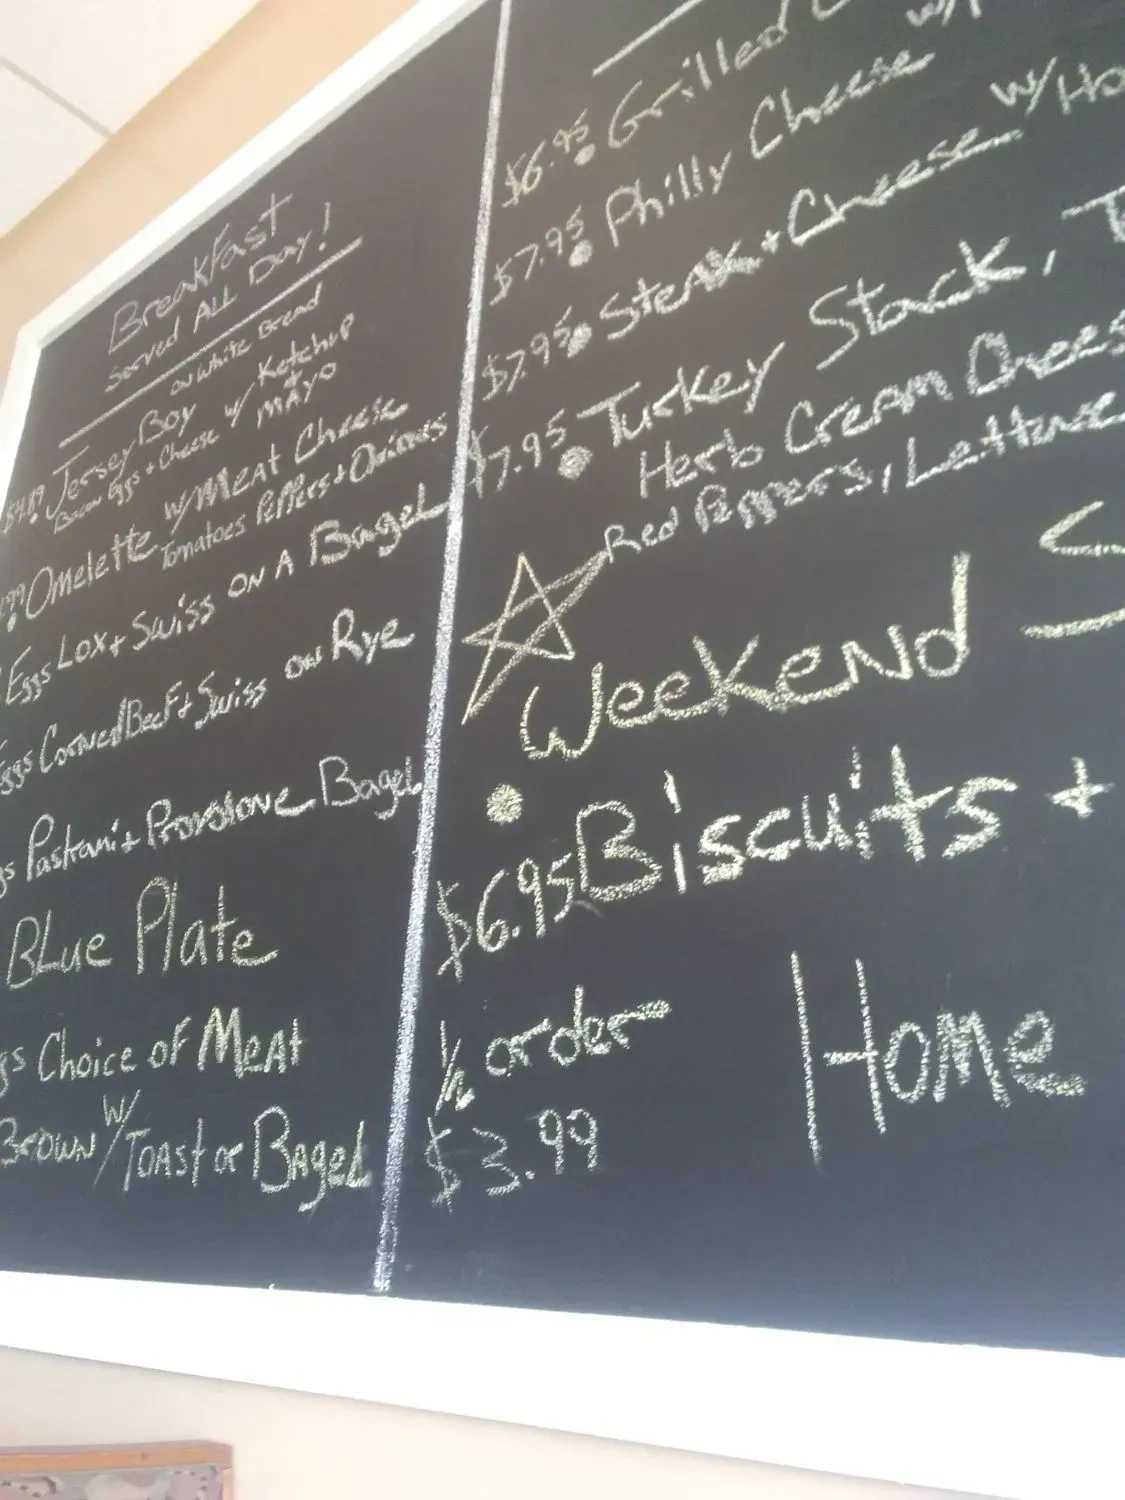 Breakfast
Served ALL Day!
on White Bread
Jersey Boy w/ Ketchup
Bacon Eggs + Cheese + MAYO
Omelette w/ Meat Cheese
Tomatoes Peppers + Onions
Eggs Lox + Swiss ON A Bagel
Eggs Corned Beef + Swiss on Rye
Pastrami + Provolone Bagel
BLue Plate
Choice of Meat
Brown w/ Toast or Bagel
$6.95 Grilled
$7.95 Philly Cheese w/
$7.95 Steak + Cheese w/
$7.95 Turkey Stack,
Herb Cream Cheese
Red Peppers, Lettuce
Weekend S
$6.95 Biscuits +
1/2 order
$3.99
Home